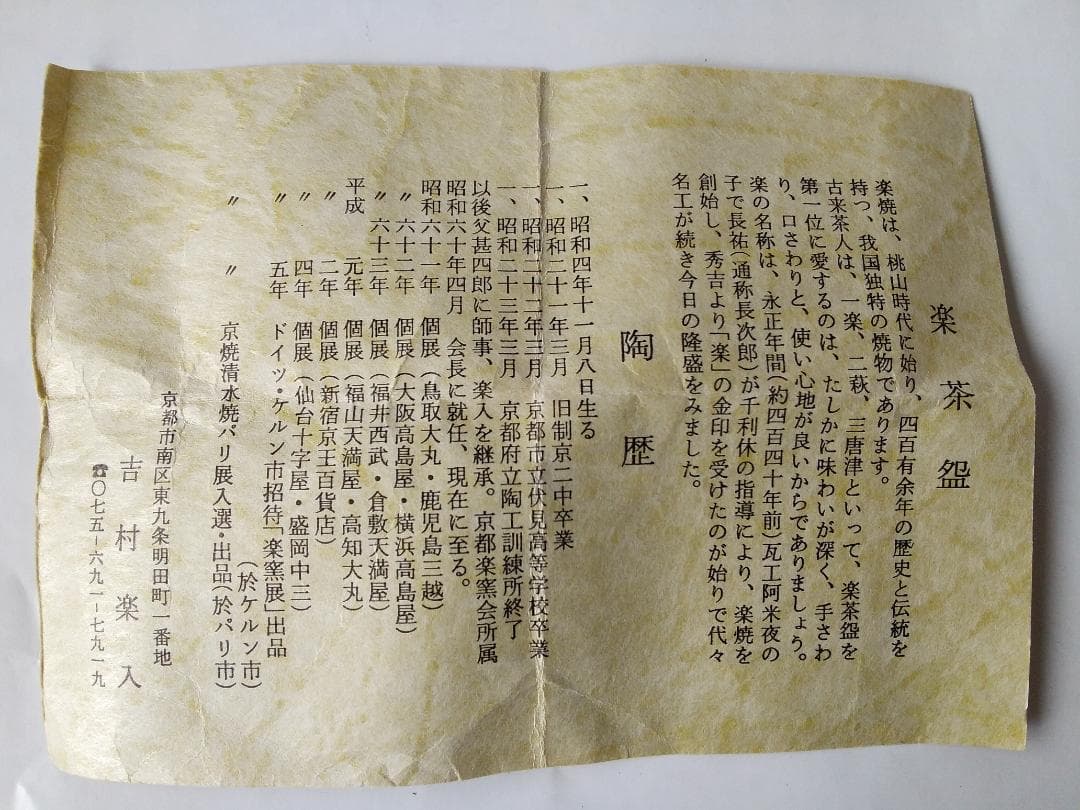 楽茶盌
楽焼は、桃山時代に始り、四百有余年の歴史と伝統を
持つ、我国独特の焼物であります。
古来茶人は、一楽、二萩、三唐津といって、楽茶盌を
第一位に愛するのは、たしかに味わいが深く、手さわ
り、口さわりと、使い心地が良いからでありましょう。
楽の名称は、永正年間(約四百四十年前)瓦工阿米夜の
子で長祐(通称長次郎)が千利休の指導により、楽焼を
創始し、秀吉より「楽」の金印を受けたのが始りで代々
名工が続き今日の隆盛をみました。
陶歴
一、昭和四年十一月八日生る
一、昭和二十一年三月 旧制京二中卒業
一、昭和二十二年三月 京都市立伏見高等学校卒業
一、昭和二十三年三月 京都府立陶工訓練所終了
以後父甚四郎に師事、楽入を継承。京都楽窯会所属
昭和六十年四月 会長に就任、現在に至る。
昭和六十一年 個展(鳥取大丸・鹿児島三越)
〃六十二年 個展(大阪高島屋・横浜高島屋)
〃六十三年 個展(福井西武・倉敷天満屋)
平成元年 個展(福山天満屋・高知大丸)
〃二年 個展(新宿京王百貨店)
〃四年 個展(仙台十字屋・盛岡中三)
〃五年 ドイツ・ケルン市招待「楽窯展」出品
(於ケルン市)
〃〃 京焼清水焼パリ展入選・出品(於パリ市)
京都市南区東九条明田町一番地
吉村楽入
☎〇七五-六九一-七九一九